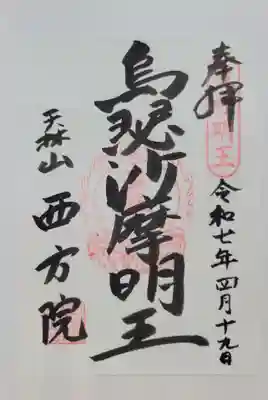 奉拝
令和七年四月十九日
烏瑟沙摩明王
天林山
西方院